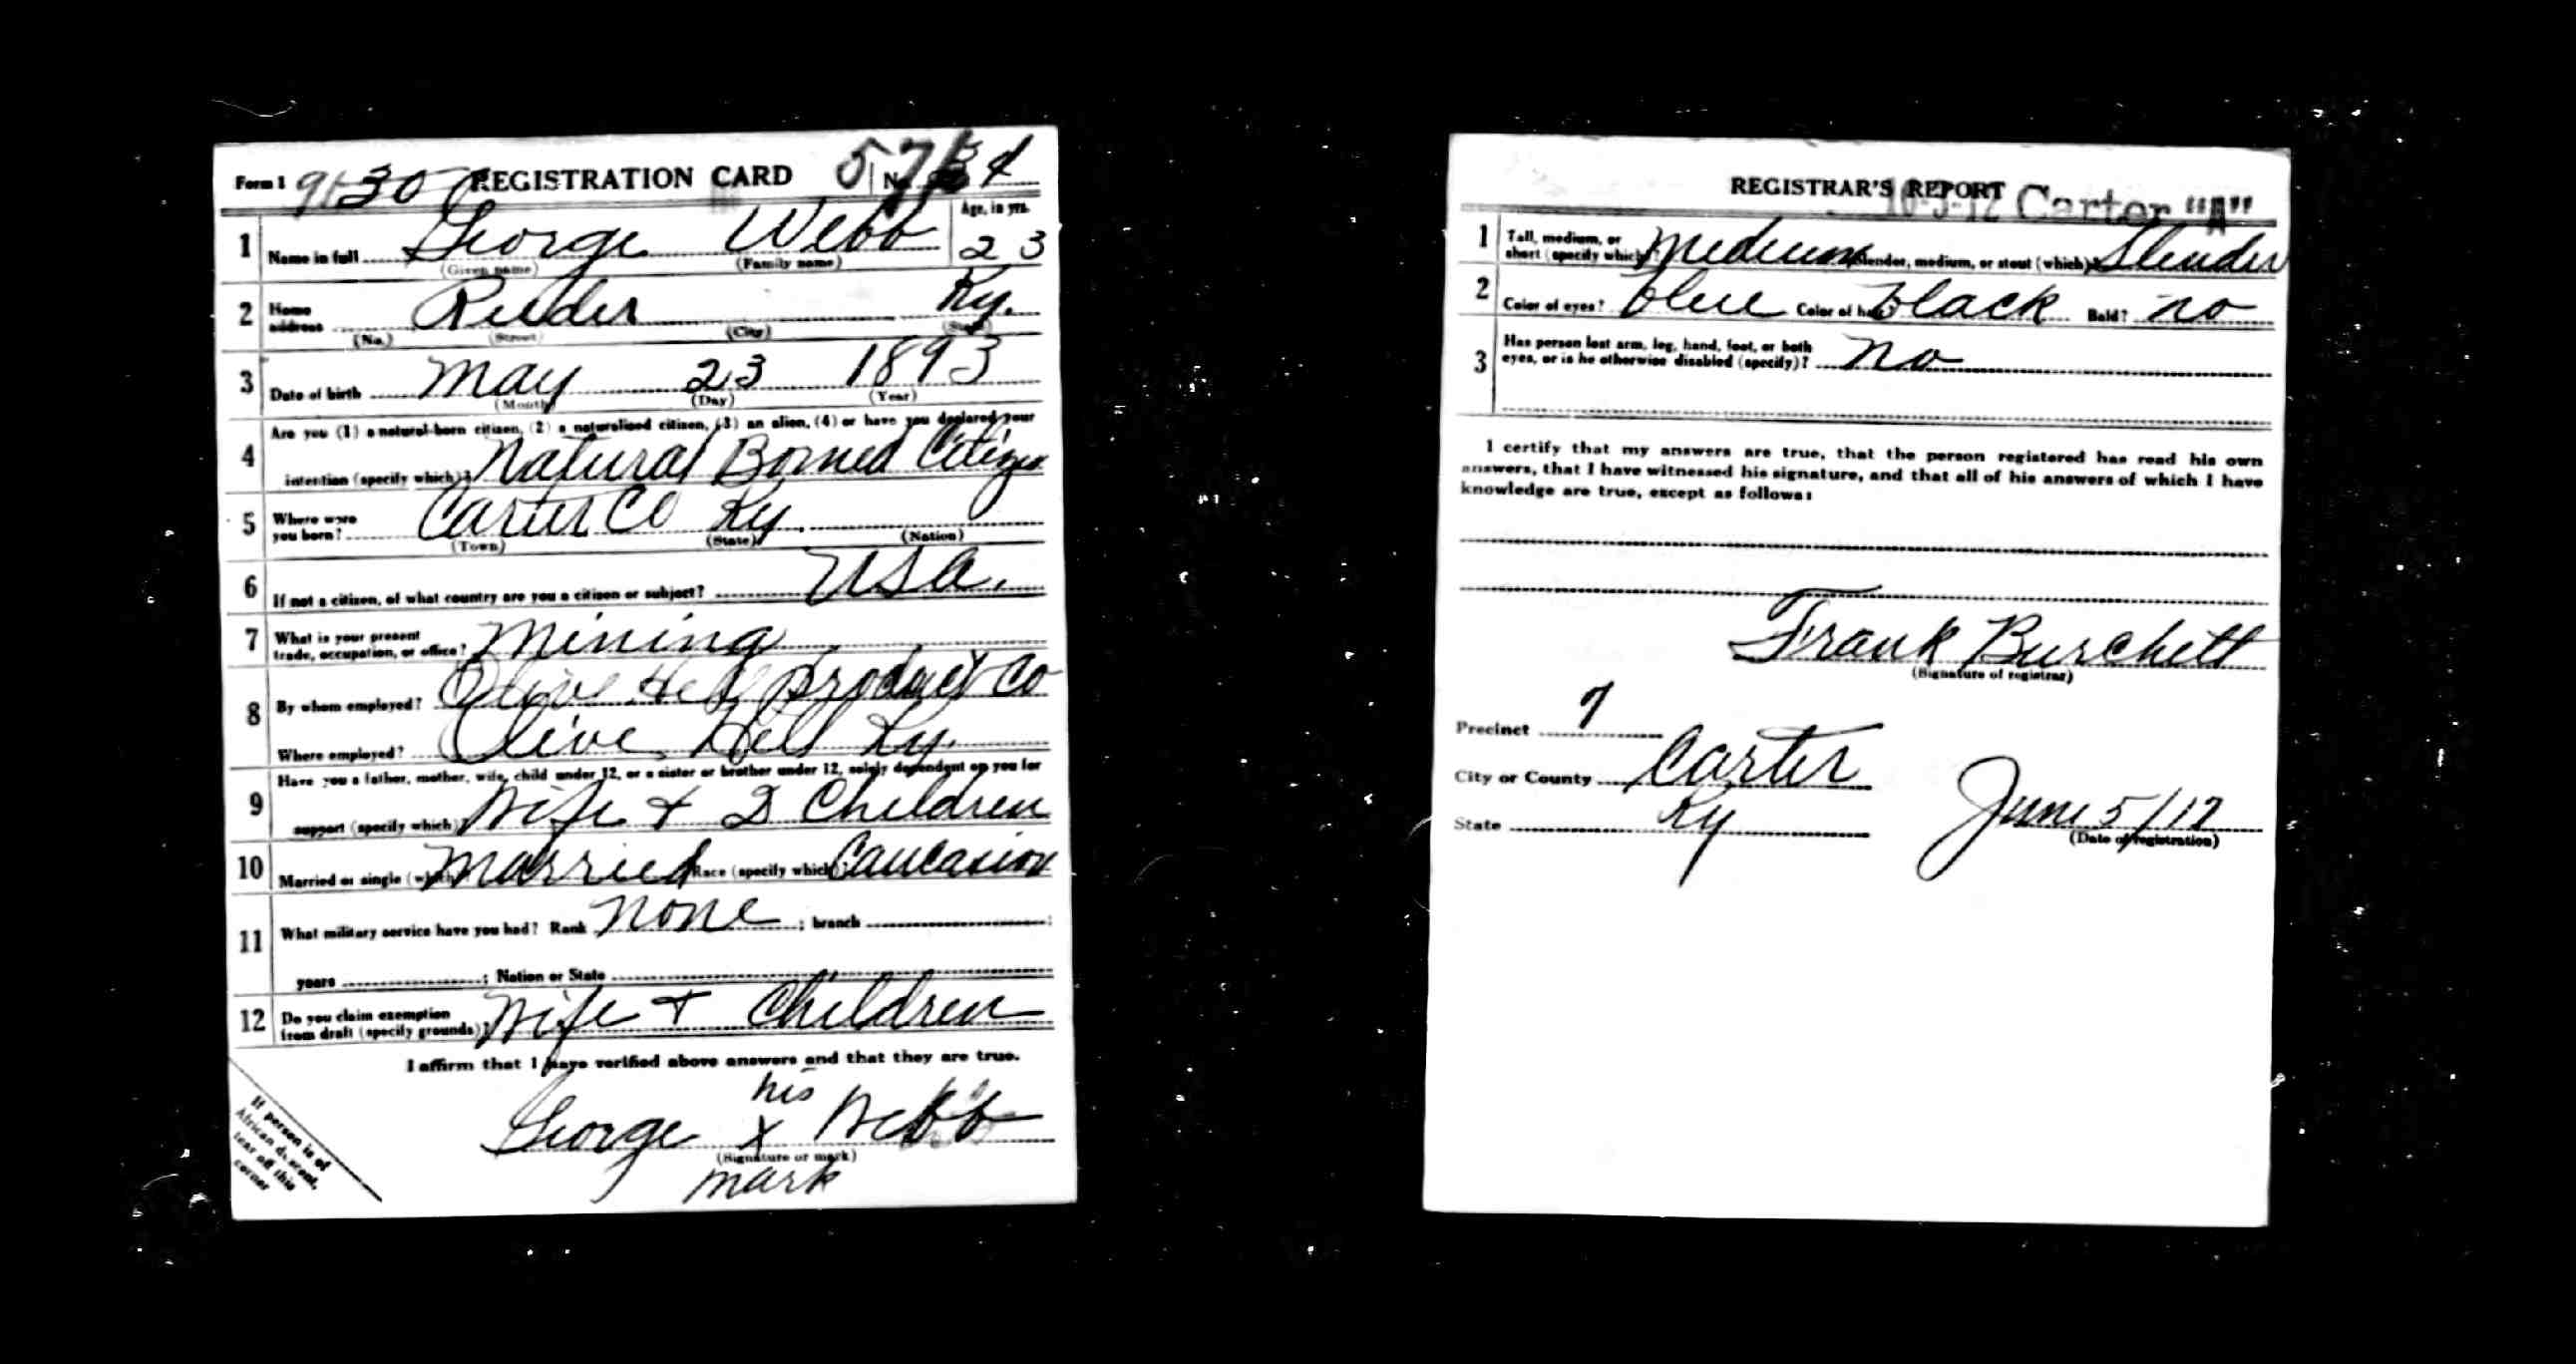 Form 1 REGISTRATION CARD No. 34
1 Name in full George Webb Age, in yrs. 23
(Given name) (Family name)
2 Home address Ky.
(No.) (Street) (City) (State)
3 Date of birth May 23 1893
(Month) (Day) (Year)
4 Are you (1) a natural-born citizen, (2) a naturalized citizen, (3) an alien, (4) or have you declared your
intention (specify which)? Natural Borned Citizen
5 Where were you born? Carter Co Ky.
(Town) (State) (Nation)
6 If not a citizen, of what country are you a citizen or subject? USA.
7 What is your present trade, occupation, or office? Mining
8 By whom employed? Olive Hill Product Co
Where employed? Olive Hill Ky.
9 Have you a father, mother, wife, child under 12, or a sister or brother under 12, solely dependent on you for
support (specify which)? Wife + 2 Children
10 Married or single (which)? Married Race (specify which)? Caucasion
11 What military service have you had? Rank none ; branch ;
years ; Nation or State
12 Do you claim exemption from draft (specify grounds)? Wife + Children
I affirm that I have verified above answers and that they are true.
his
George X Webb
(Signature or mark)
mark
If person is of
African descent,
tear off this
corner
REGISTRAR'S REPORT
Carter "A"
1 Tall, medium, or short (specify which)? Medium Slender, medium, or stout (which)? Slender
2 Color of eyes? blue Color of hair? black Bald? no
3 Has person lost arm, leg, hand, foot, or both
eyes, or is he otherwise disabled (specify)? no
I certify that my answers are true, that the person registered has read his own
answers, that I have witnessed his signature, and that all of his answers of which I have
knowledge are true, except as follows:
Frank Burchett
(Signature of registrar)
Precinct 7
City or County Carter
State Ky
June 5/17
(Date of registration)